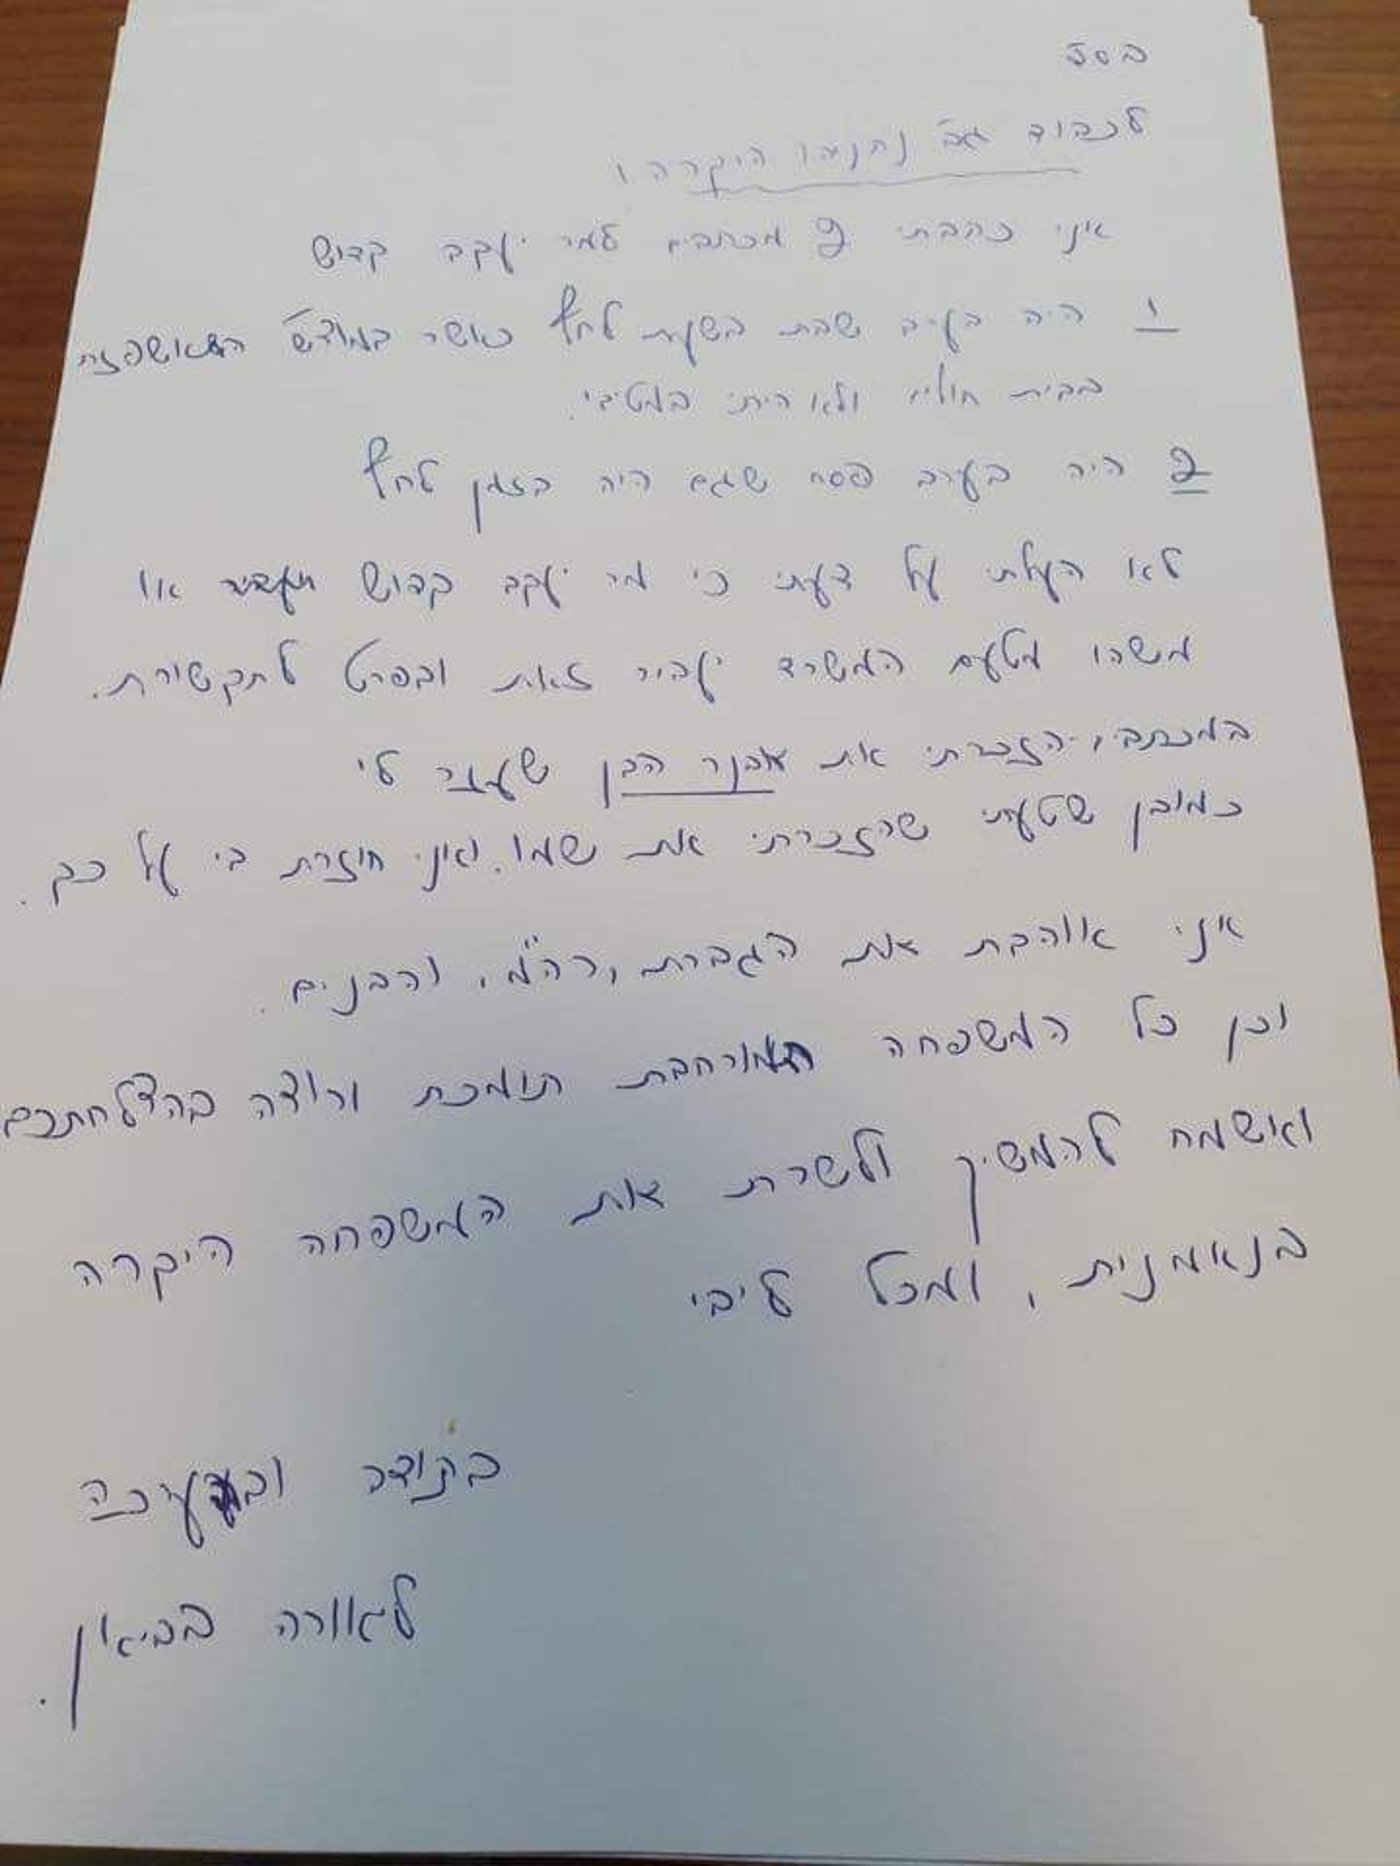 בסד
לכבוד גב' נתניהו היקרה,
אני כתבתי 2 מכתבים למר יעקב קדוש
1 היה בערב שבת בשעת לחץ כאשר במוצ"ש התאשפזתי
בבית חולים ולא הייתי במטיבי.
2 היה בערב פסח שגם היה בזמן לחץ
לא העלתי על דעתי כי מר יעקב קדוש יעביר או
משהו מטעם המשרד יעביר זאת ובפרט לתקשורת.
במכתבי, הזכרתי את אבנר הבן שעזר לי
כמובן שטעתי שהזכרתי את שמו. ואני חוזרת בי על כך.
אני אוהבת את הגברת, רה"מ, והבנים.
וכן כל המשפחה המורחבת תומכת ורוצה בהצלחתכם
ואשמח להמשיך ולשרת את המשפחה היקרה
בנאמנות, ומכל ליבי
בתודה ובהערכה
לאורה בביאן.